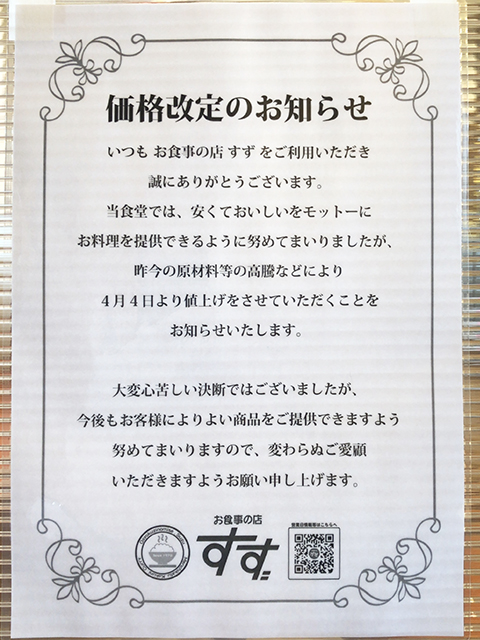 価格改定のお知らせ
いつも お食事の店 すず をご利用いただき
誠にありがとうございます。
当食堂では、安くておいしいをモットーに
お料理を提供できるように努めてまいりましたが、
昨今の原材料等の高騰などにより
4月4日より値上げをさせていただくことを
お知らせいたします。
大変心苦しい決断ではございましたが、
今後もお客様によりよい商品をご提供できますよう
努めてまいりますので、変わらぬご愛顧
いただきますようお願い申し上げます。
お食事の店
すず